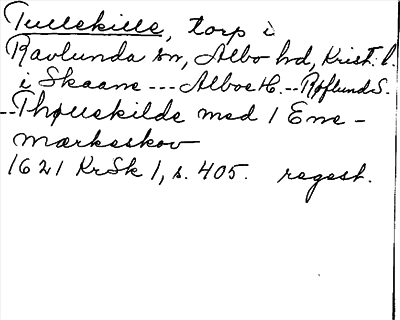 Tullekille, torp i
Ravlunda sn, Albo hd, Krist. l.
i Skaane --- Alboe H. -- Røflund S.
-- Thouskilde med 1 Eme-
markeskov
1621 KrSk 1, s. 405. regest.